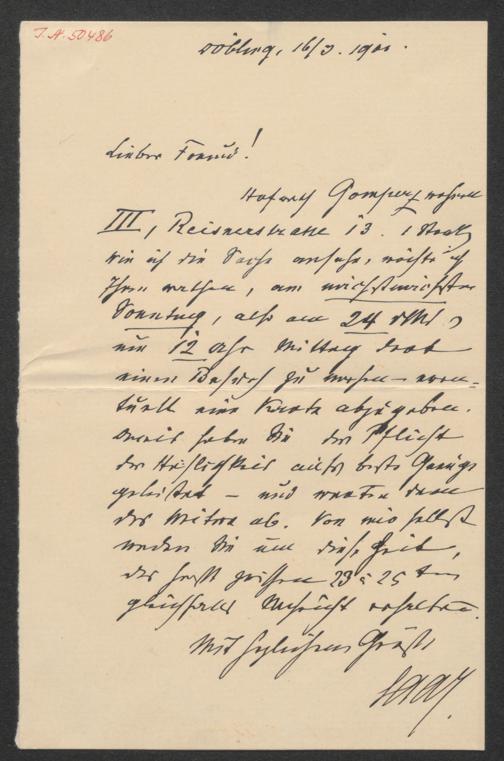 I.N. 50486
Döbling, 16/3. 1901.
Lieber Freund!
Hofrath Gomperz wohnt
III, Reisnerstrasse 13. 1 Stock
wie ich die Sache ansehe, möchte ich
Ihnen rathen, am nächstnächsten
Sonntag, also am 24 dMts
um 12 Uhr Mittag dort
einen Besuch zu machen – even-
tuell eine Karte abzugeben.
haben Sie der Pflicht
der Höflichkeit aufs beste Genüge
geleistet – und warten dann
das Weitere ab. Von mir selbst
werden Sie um diese Zeit,
das heißt zwischen 23 & 25 ten
gleichfalls Nachricht erhalten.
Mit herzlichem Gruße
Saar